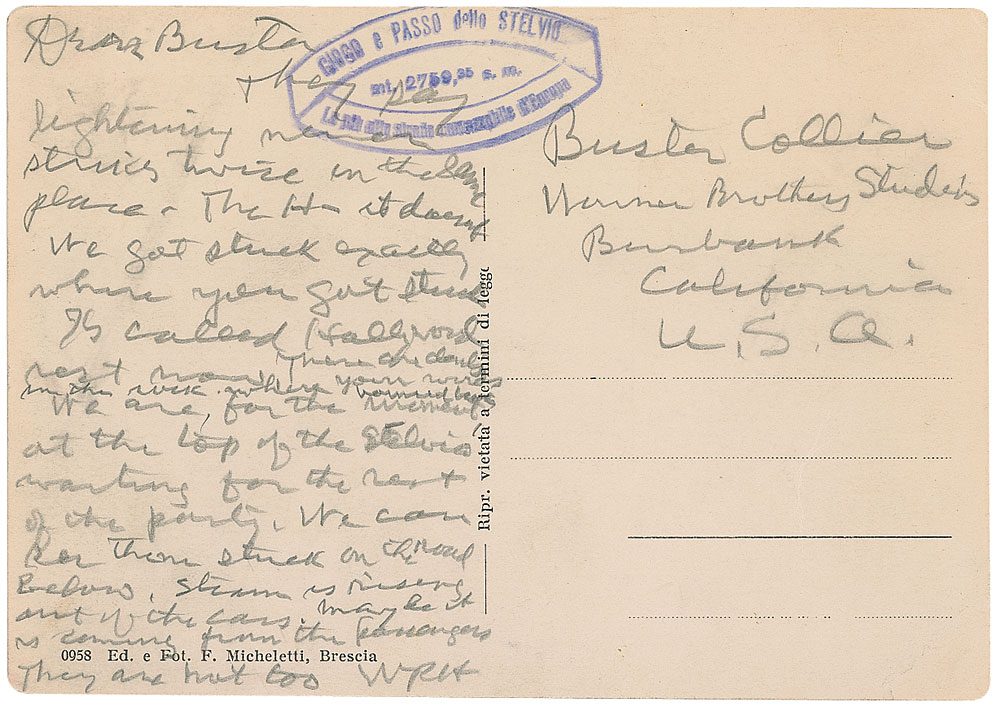 Dear Buster
they say
lightning never
strikes twice in the same
place - The H- it doesnt
We got stuck exactly
where you got stuck
Its called Hollywood
rest now There are
in the rock where your words bounced
We are, for the moment
at the top of the Stelvio
waiting for the rest
of the party. We can
see them stuck on the road
Below. Steam is rising
out of the cars. Maybe it
is coming from the passengers
They are hot too WRH
GIOGO e PASSO dello STELVIO
mt. 2759,35 s. m.
La più alta strada automobile d'Europa
Buster Collier
Warner Brothers Studios
Burbank
California
U.S.A.
Ripr. vietata a termini di legge
0958 Ed. e Fot. F. Micheletti, Brescia